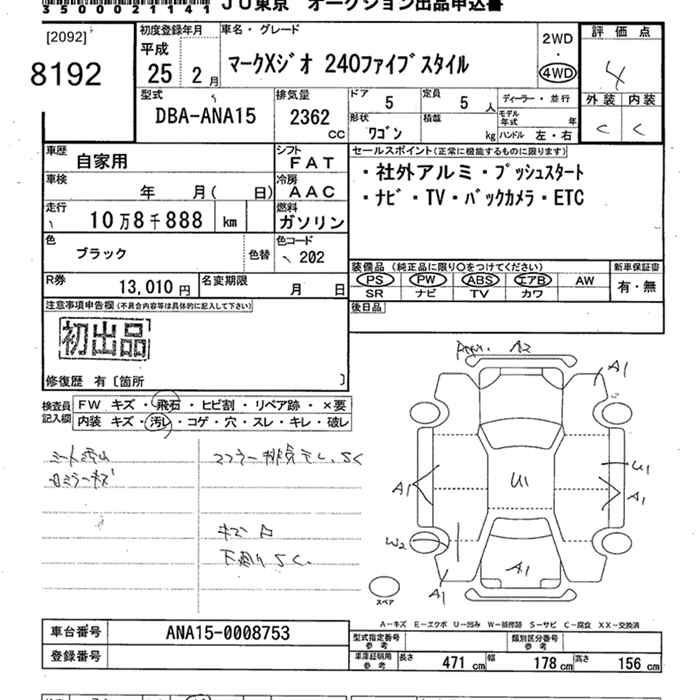 3500021141 JU東京 オークション出品申込書
[2092]
8192
初度登録年月
平成
25年 2月
車名・グレード
マークXジオ 240ファイブスタイル
2WD
・
4WD
評価点
4
外装 内装
C C
型式
DBA-ANA15
排気量
2362 CC
ドア 5
定員 5 人
形状 ワゴン
積載 kg
ディーラー・並行
モデル年式 年
ハンドル 左・右
車歴
自家用
シフト
FAT
車検
年 月( 日)
冷房
AAC
走行
10万8千888 km
燃料
ガソリン
色
ブラック
色替
色コード
202
R券
13,010円
名変期限
月 日
セールスポイント(正常に機能するものに限ります)
・社外アルミ・プッシュスタート
・ナビ・TV・バックカメラ・ETC
装備品(純正品に限り○をつけてください)
PS PW ABS エアB AW
SR ナビ TV カワ
新車保証書
有・無
後日品
注意事項申告欄(不具合内容等は具体的に記入して下さい)
初出品
修復歴 有〔箇所 〕
検査員記入欄
FW キズ・飛石・ヒビ割・リペア跡・×要
内装 キズ・汚レ・コゲ・穴・スレ・キレ・破レ
キズ 凹
下廻りSC
A2
A1
U1
U1
A1
A1
W2
A1
A1
スペア
A-キズ E-エクボ U-凹み W-補修跡 S-サビ C-腐食 XX-交換済
車台番号
ANA15-0008753
登録番号
型式指定番号 参考
類別区分番号 参考
車庫証明用 参考
長さ 471 cm
幅 178 cm
高さ 156 cm